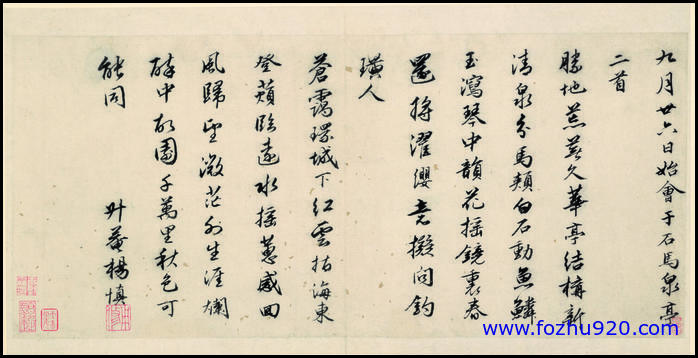 九月廿六日始會于石馬泉亭
二首
勝地荒蕪久華亭結構新
清泉分馬頰白石動魚鱗
玉瀉琴中韻花搖鏡裏春
還將濯纓意擬問釣
璜人
蒼靄環城下紅雲拍海東
登蘋臨遠水搖蕙感回
風歸望微茫外生涯爛
醉中故園千萬里秋色可
能同
升菴楊慎
www.fozhu920.com